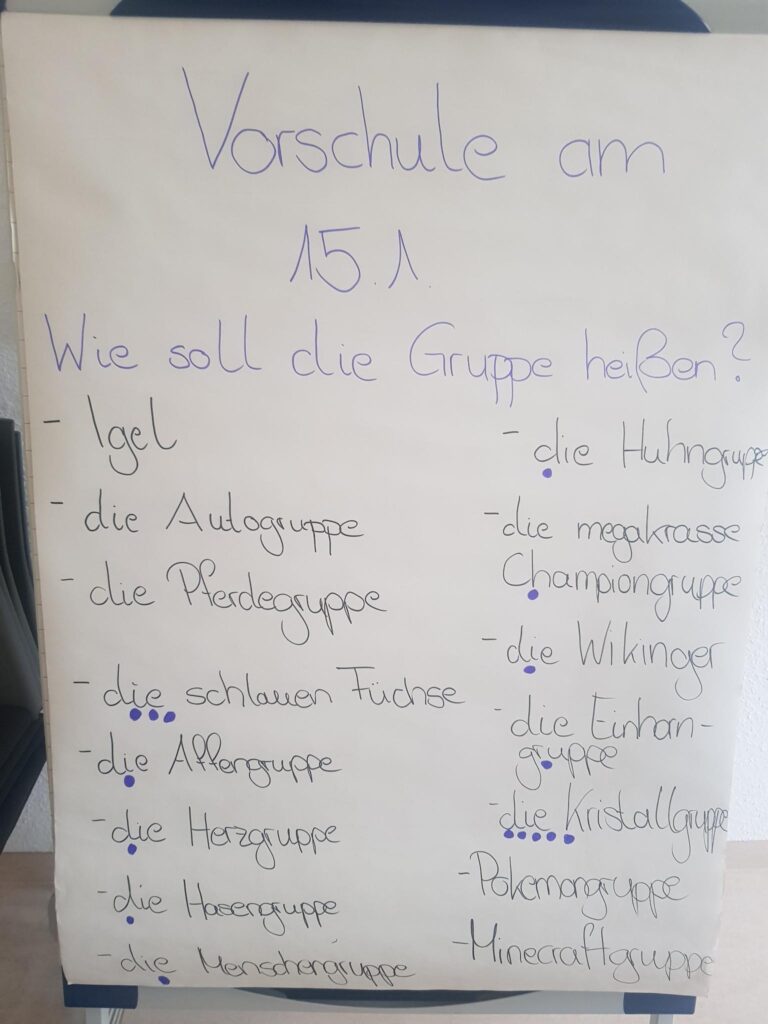 Vorschule am
15.1.
Wie soll die Gruppe heißen?
- Igel
- die Autogruppe
- die Pferdegruppe
- die schlauen Füchse
- die Affengruppe
- die Herzgruppe
- die Hasengruppe
- die Menschengruppe
- die Huhngruppe
- die megakrasse
Championgruppe
- die Wikinger
- die Einhorn-
gruppe
- die Kristallgruppe
- Pokemongruppe
- Minecraftgruppe